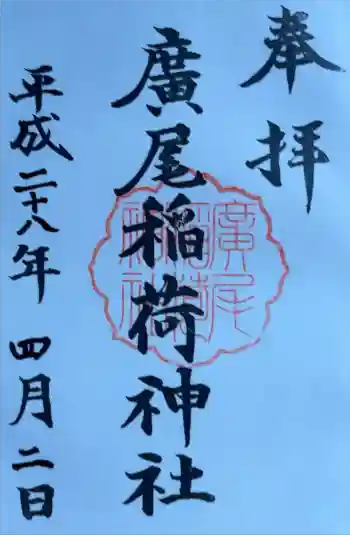 奉拝
廣尾稲荷神社
平成二十八年四月二日
廣尾
稲荷
神社